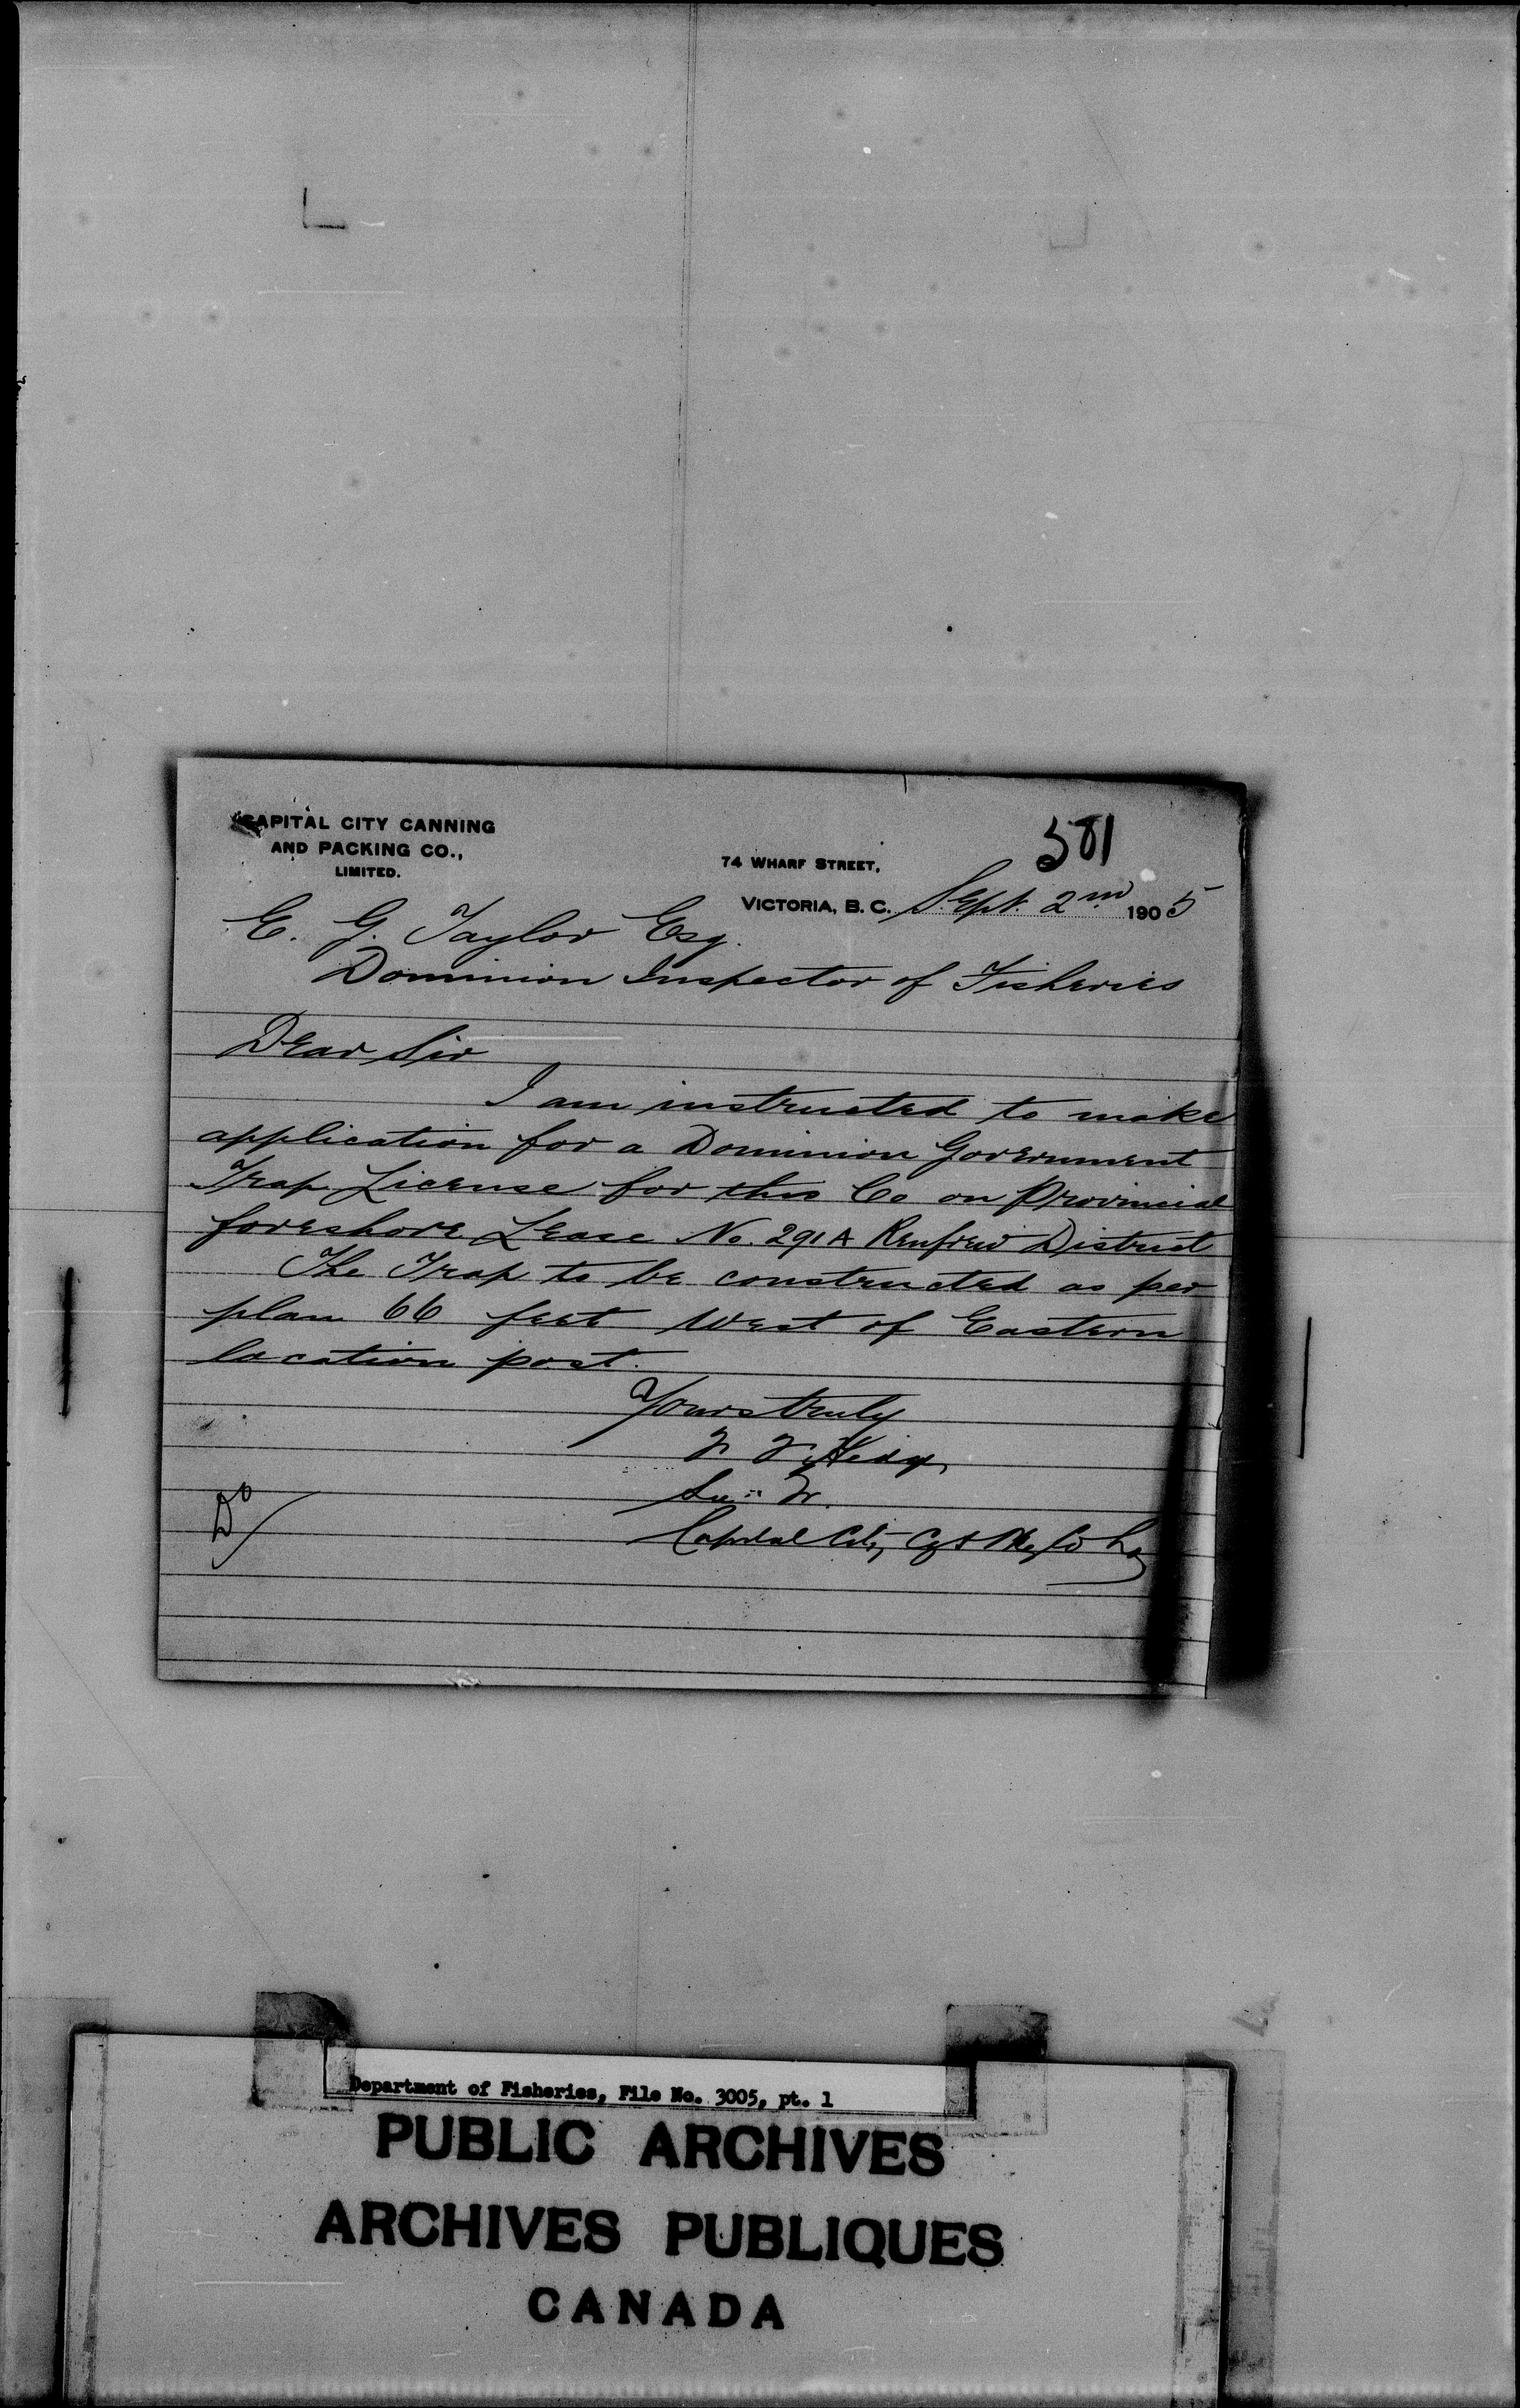 CAPITAL CITY CANNING
AND PACKING CO.,
LIMITED.
581
74 WHARF STREET,
VICTORIA, B.C. Sept. 2nd 1905
E. G. Taylor Esq.
Dominion Inspector of Fisheries
Dear Sir
I am instructed to make
application for a Dominion Government
Trap License for this Co on Provincial
foreshore Lease No. 291A Renfrew District
The Trap to be constructed as per
plan 66 feet West of Eastern
location post.
Yours truly
Capital City
Do
Department of Fisheries, File No. 3005, pt. 1
PUBLIC ARCHIVES
ARCHIVES PUBLIQUES
CANADA